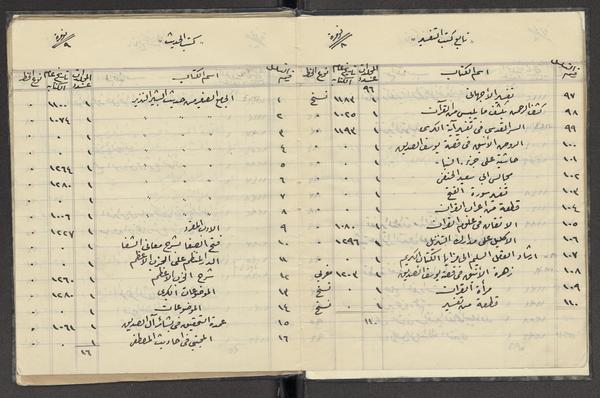 تابع كتب التفسير
نمرة ٨
اسم الكتاب
عدد المجلدات
تاريخ عام الكتابة
نوع الخط
٩٦
٩٧ تفسير الأجهوري ١ ١١٨٣ نسخ
٩٨ كشف الرحمن بكشف ما يلبس من القرآن ١ ١٠٢٥
٩٩ السر القدسي في تفسير آية الكرسي ١ ١١٩٣
١٠٠ الروض الأنيق في قصة يوسف الصديق ١ ٠
١٠١ حاشية على جزء النبا ١ ٠
١٠٢ مجالس ابي سعيد الحنفي ١ ٠
١٠٣ تفسير سورة الفتح ١ ٠
١٠٤ قطعة من اعراب القرآن ١ ٠
١٠٥ الاتقان في علوم القرآن ١ ١٠٨٠
١٠٦ الاكليل على مدارك التنزيل ١ ١٢٩٦
١٠٧ ارشاد العقل السليم الى مزايا الكتاب الكريم ١ ٠
١٠٨ زهرة الأنيق في قصة يوسف الصديق ١ ١٢٠٣ مغربي
١٠٩ مرآة القرآن ١ ٠ نسخ
١١٠ قطعة من تفسير ١ ٠ نسخ
١١٠
كتب الحديث
نمرة ٩
اسم الكتاب
عدد المجلدات
تاريخ عام الكتابة
نوع الخط
١ الجامع الصغير من حديث البشير النذير ١ ١١٠٠
٢ ١ ١٠٧٤
٣ ١ ٠
٤ ١ ٠
٥ ١ ١٢٦٤
٦ ١ ١٢٨٠
٧ ١ ٠
٨ ١ ١٠٠٦
٩ الادب المفرد ١ ١٢٢٧
١٠ فتح الصفا شرح معاني الشفا ١ ٠
١١ الدر المنظم على الحزب الأعظم ١ ٠
١٢ شرح الحزب الأعظم ١ ١٢٦٠
١٣ الموضوعات ١ ١٢٨٠
١٤ الموضوعات ١ ٠
١٥ عمدة التحقيق في بشائر آل الصديق ١ ١٠٦١
١٦ المجتبى في احاديث المصطفى ١
١٦